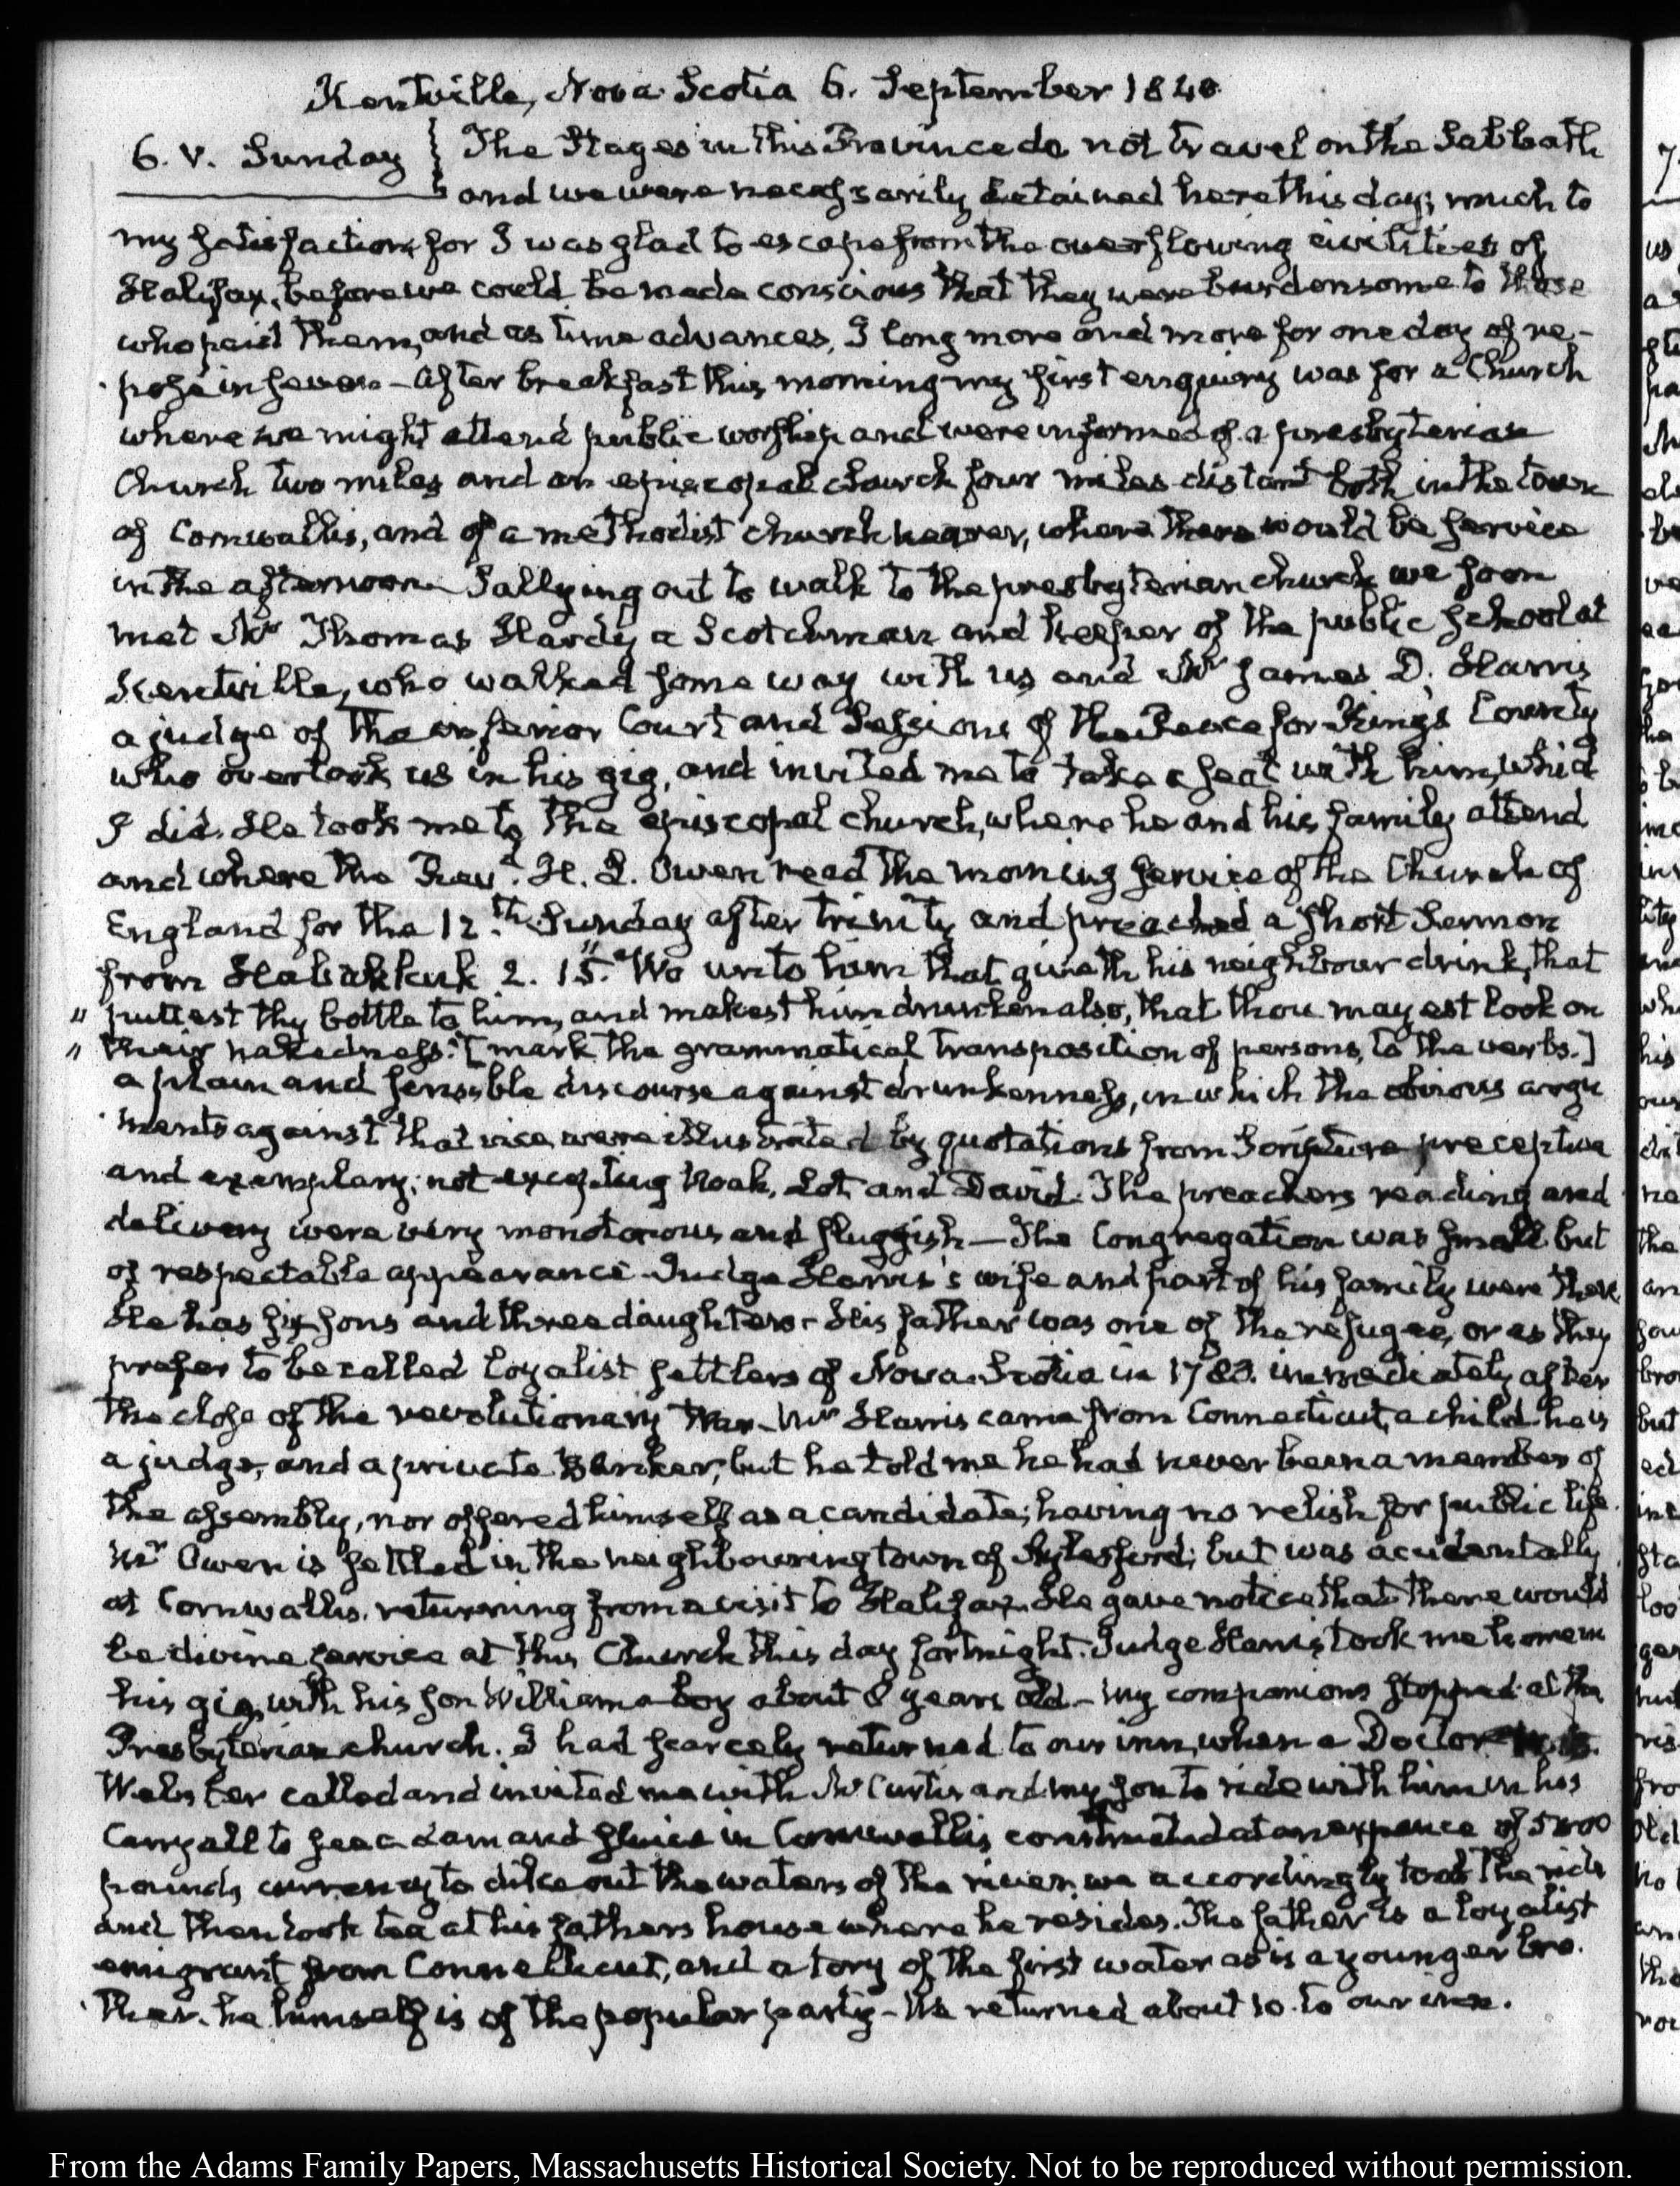 Kentville, Nova Scotia 6. September 1840
6. V. Sunday } The Stages in this Province do not travel on the Sabbath
and we were necessarily detained here this day; much to
my satisfaction, for I was glad to escape from the overflowing civilities of
Halifax, before we could be made conscious that they were burdensome to those
who paid them, and as time advances, I long more and more for one day of re-
pose in seven — After breakfast this morning my first enquiry was for a Church
where we might attend public worship and were informed of a presbyterian
Church two miles and an episcopal church four miles distant both in the town
of Cornwallis, and of a methodist church nearer, where there would be service
in the afternoon. Sallying out to walk to the presbyterian church we soon
met Mr Thomas Hardy a Scotchman and keeper of the public school at
Kentville, who walked some way with us and Mr James D. Harris
a judge of the inferior Court and Sessions of the Peace for King's County
who overtook us in his gig, and invited me to take a seat with him, which
I did. He took me to the episcopal church, where he and his family attend
and where the Revd. H. L. Owen read the morning service of the Church of
England for the 12.th Sunday after trinity and preached a short Sermon
from Habakkuk 2. 15. "Wo unto him that giveth his neighbour drink, that
" puttest thy bottle to him, and makest him drunken also, that thou mayest look on
" their nakedness." [mark the grammatical transposition of persons, to the verbs.]
a plain and sensible discourse against drunkenness, in which the obvious argu
ments against that vice were illustrated by quotations from Scripture preceptive
and exemplary; not excepting Noah, Lot and David. The preachers reading and
delivery were very monotonous and sluggish — The Congregation was small but
of respectable appearance. Judge Harris's wife and part of his family were there
He has six sons and three daughters — His father was one of the refugee, or as they
prefer to be called Loyalist settlers of Nova-Scotia in 1783. immediately after
the close of the revolutionary War — Mr Harris came from Connecticut, a child. he is
a judge, and a private Banker, but he told me he had never been a member of
the assembly, nor offered himself as a candidate; having no relish for public life.
Mr Owen is settled in the neighbouring town of Aylesford; but was accidentally
at Cornwallis, returning from a visit to Halifax. He gave notice that there would
be divine service at this Church this day fortnight. Judge Harris took me home in
his gig, with his son William a boy about 8 years old — My companions stopped at the
Presbyterian church. I had scarcely returned to our inn, when a Doctor
Webster called and invited me with Mr Curtis and my son to ride with him in his
Carryall to see a dam and sluice in Cornwallis constructed at an expence of 5000
pounds currency to dike out the waters of the river. we accordingly took the ride
and then took tea at his fathers house where he resides. The father is a loyalist
emigrant from Connecticut, and a tory of the first water as is a younger bro.
ther. he himself is of the popular party — We returned about 10. to our inn.
From the Adams Family Papers, Massachusetts Historical Society. Not to be reproduced without permission.